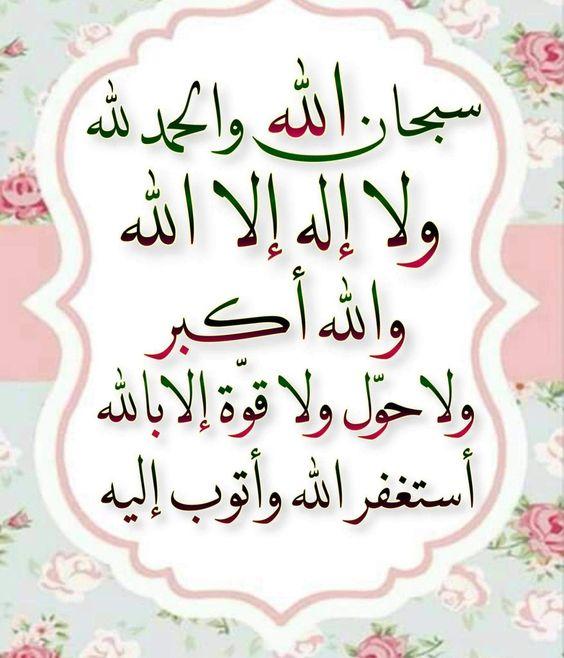 سبحان الله والحمد لله
ولا إله إلا الله
والله أكبر
ولا حوّل ولا قوّة إلا بالله
أستغفر الله وأتوب إليه